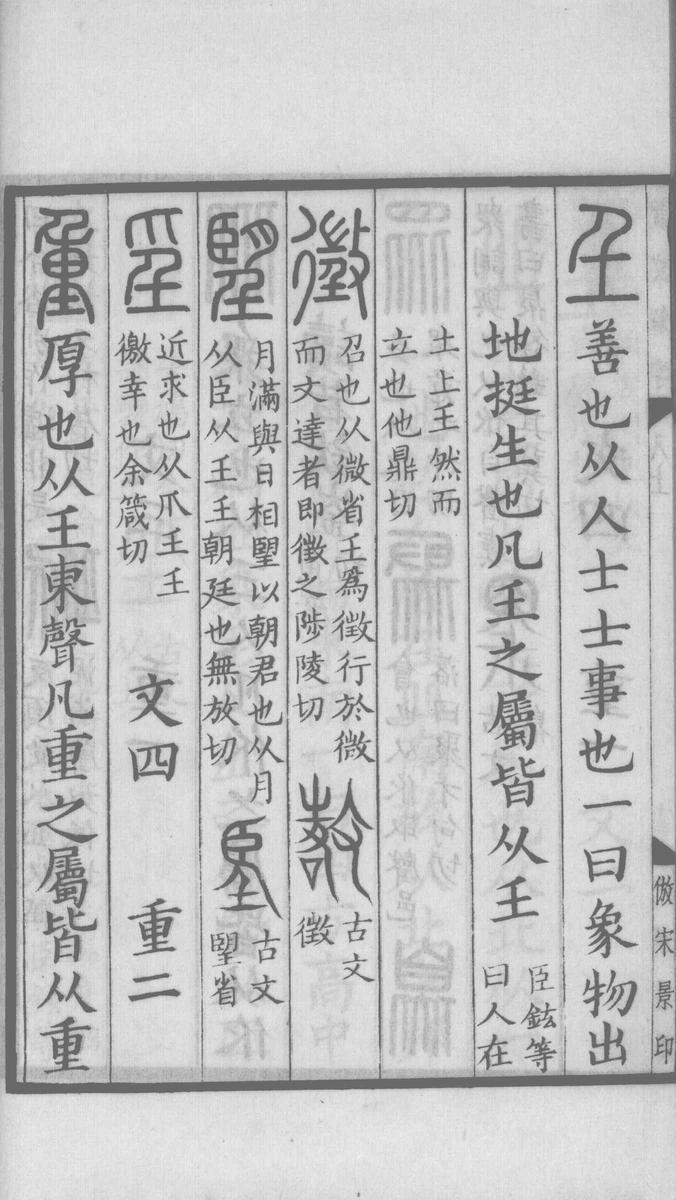 倣宋景印
𡈼善也从人士士事也一曰象物出
地挺生也凡𡈼之屬皆从𡈼
臣鉉等
曰人在
土上𡈼然而
立也他鼎切
徵
召也从微省𡈼爲徵行於微
而文達者即徵之陟陵切
古文
徵
朢
月滿與日相朢以朝君也从月
从臣从𡈼𡈼朝廷也無放切
古文
朢省
㸒
近求也从爪𡈼𡈼
徼幸也余箴切
文四 重二
重厚也从𡈼東聲凡重之屬皆从重